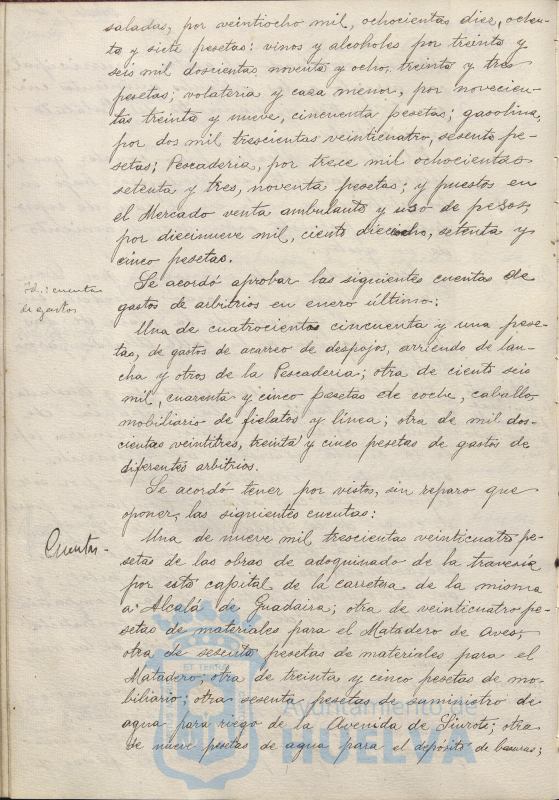 saladas, por veintiocho mil, ochocientas diez, ochen-
ta y siete pesetas: vinos y alcoholes por treinta y
seis mil doscientas noventa y ocho, treinta y tres
pesetas; volateria y caza menor, por novecien-
tas treinta y nueve, cincuenta pesetas; gasolina,
por dos mil trescientas veinticuatro, sesenta pe-
setas; Pescaderia, por trece mil ochocientas
setenta y tres, noventa pesetas; y puestos en
el Mercado venta ambulante y uso de pesos,
por diecinueve mil, ciento dieciocho, setenta y
cinco pesetas.
Id.: cuentas
de gastos
Se acordó aprobar las siguientes cuentas de
gastos de arbitrios en enero último:
Una de cuatrocientas cincuenta y una pese-
tas, de gastos de acarreo de despojos, arriendo de lan-
cha y otros de la Pescaderia; otra de ciento seis
mil, cuarenta y cinco pesetas de coche, caballo,
mobiliario de fielatos y linea; otra de mil dos-
cientas veintitres, treinta y cinco pesetas de gastos de
diferentes arbitrios.
Se acordó tener por vistos, sin reparo que
oponer, las siguientes cuentas:
Cuentas-
Una de nueve mil trescientas veinticuatro pe-
setas de las obras de adoquinado de la travesía
por esta capital de la carretera de la misma
a Alcalá de Guadaira; otra de veinticuatro pe-
setas de materiales para el Matadero de Aves;
otra de sesenta pesetas de materiales para el
Matadero; otra de treinta y cinco pesetas de mo-
biliario; otra sesenta pesetas de suministro de
agua para riego de la Avenida de Siurot; otra
de nueve pesetas de agua para el depósito de basuras;
Ayuntamiento de
HUELVA